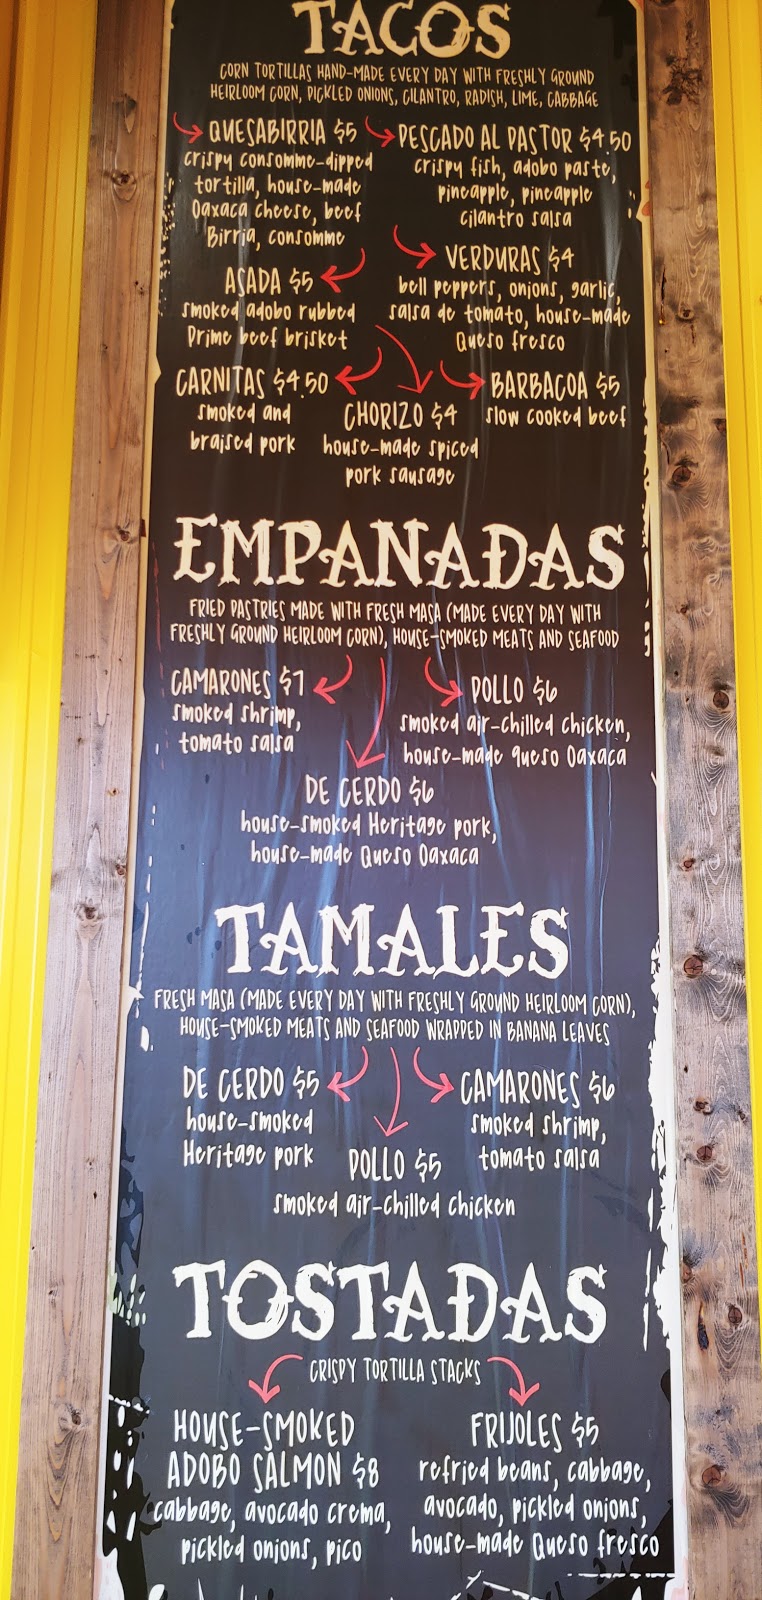 TACOS
CORN TORTILLAS HAND-MADE EVERY DAY WITH FRESHLY GROUND
HEIRLOOM CORN, PICKLED ONIONS, CILANTRO, RADISH, LIME, CABBAGE
QUESABIRRIA $5
crispy consomme-dipped
tortilla, house-made
Oaxaca cheese, beef
Birria, consomme
PESCADO AL PASTOR $4.50
crispy fish, adobo paste,
pineapple, pineapple
cilantro salsa
ASADA $5
smoked adobo rubbed
Prime beef brisket
VERDURAS $4
bell peppers, onions, garlic,
salsa de tomato, house-made
Queso fresco
CARNITAS $4.50
smoked and
braised pork
CHORIZO $4
house-made spiced
pork sausage
BARBACOA $5
slow cooked beef
EMPANADAS
FRIED PASTRIES MADE WITH FRESH MASA (MADE EVERY DAY WITH
FRESHLY GROUND HEIRLOOM CORN), HOUSE-SMOKED MEATS AND SEAFOOD
CAMARONES $7
smoked shrimp,
tomato salsa
POLLO $6
smoked air-chilled chicken,
house-made queso Oaxaca
DE CERDO $6
house-smoked Heritage pork,
house-made Queso Oaxaca
TAMALES
FRESH MASA (MADE EVERY DAY WITH FRESHLY GROUND HEIRLOOM CORN),
HOUSE-SMOKED MEATS AND SEAFOOD WRAPPED IN BANANA LEAVES
DE CERDO $5
house-smoked
Heritage pork
POLLO $5
smoked air-chilled chicken
CAMARONES $6
smoked shrimp,
tomato salsa
TOSTADAS
CRISPY TORTILLA STACKS
HOUSE-SMOKED
ADOBO SALMON $8
cabbage, avocado crema,
pickled onions, pico
FRIJOLES $5
refried beans, cabbage,
avocado, pickled onions,
house-made Queso fresco